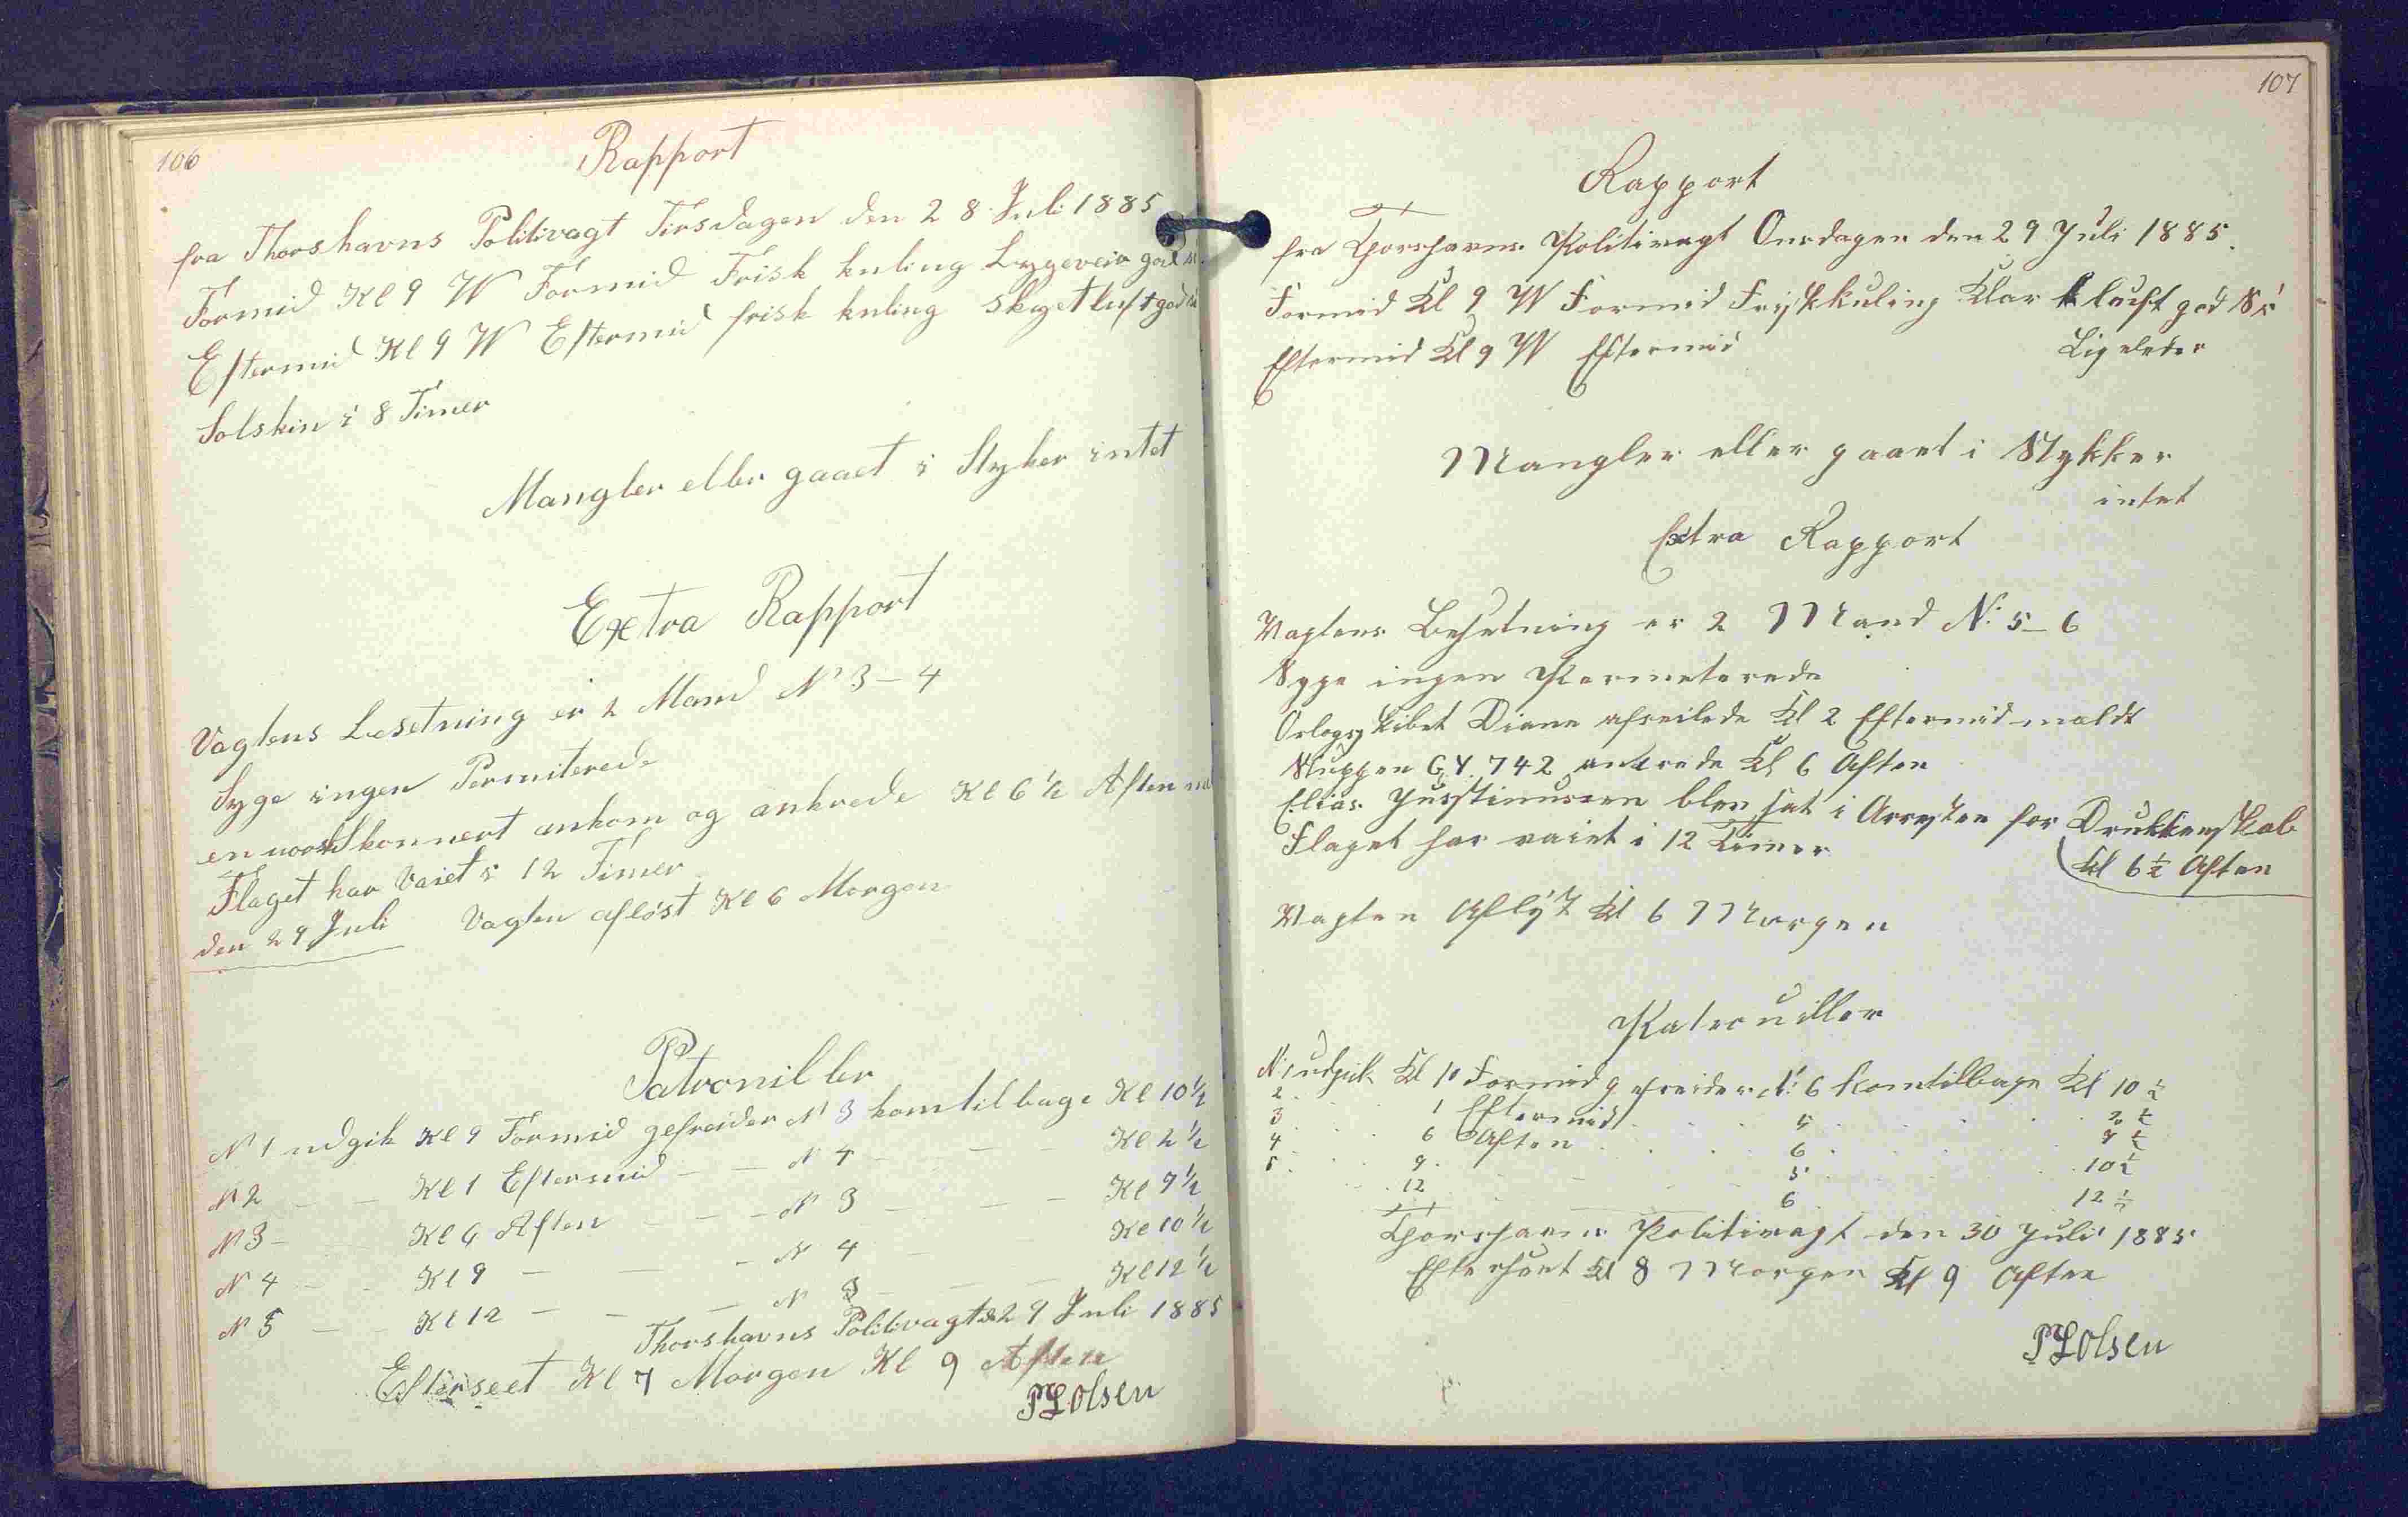 106
Rapport
fra Thorshavns Politivagt Tirsdagen den 28 Juli 1885
Formid Kl 9 W Formid Frisk kuling Lygeveir god
Eftermid Kl 9 W Eftermid frisk kuling skyet luft god
Solskin i 8 Timer
Mangler eller gaaet i Styker intet
Extra Rapport
Vagtens Besetning er 2 Mand N 3-4
Syge ingen Permiterede
en norsk Skonnert ankom og ankrede Kl 6 ½ Aften
Flaget har Vaiet i 12 Timer
den 29 Juli Vagten afløst Kl 6 Morgen
Patrouiller
N 1 udgik Kl 9 Formid gefreider N 3 kom tilbage Kl 10½
N 2 - - Kl 1 Eftermid - - N 4 - - - - Kl 2½
N 3 - - Kl 6 Aften - - - N 3 - - - Kl 7½
N 4 - - Kl 9 - - - N 4 - - Kl 10½
N 5 - - Kl 12 - - - N 3 - - - Kl 12½
Thorshavns Politivagt d 29 Juli 1885
Efterseet Kl 7 Morgen Kl 9 Aften
PLOlsen
107
Rapport
fra Thorshavns Politivagt Onsdagen den 29 Juli 1885.
Formid Kl 9 W Formid Frisk kuling Klar luft god Si
Eftermid Kl 9 W Eftermid Ligeledes
Mangler eller gaaet i Stykker
intet
Extra Rapport
Vagtens Besetning er 2 Mand N: 5-6
Syge ingen Permeterede
Orlogsskibet Diana afseilede Kl 2 Eftermid
Sluppen GY 742 ankrede Kl 6 Aften
Elias Justinussen blev sat i Arresten for Drukkenskab
Kl 6½ Aften
Flaget har vaiet i 12 Timer
Vagten Afløst Kl 6 Morgen
Patrouiller
N: 1 udgik Kl 10 Formid gefreider N: 6 kom tilbage Kl 10 ½
2 . . 1 Eftermid . . . 5 . . . 2 ½
3 . . 6 Aften . . . 6 . . . 7 ½
4 . . 9 . . . 5 . . . 10 ½
5 . . 12 . . . 6 . . . 12 ½
Thorshavns Politivagt den 30 Juli 1885
Efterseet Kl 8 Morgen Kl 9 Aften
PLOlsen